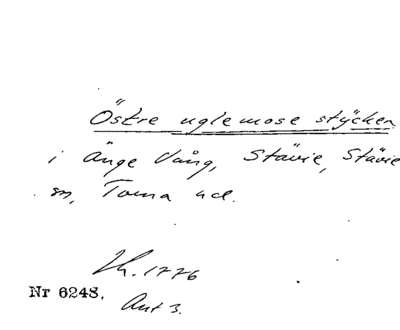 Östre uglemose stÿcken
i Änge Vång, Stävie, Stävie
sn, Torna hd.
Lh. 1776
Nr 6248.
Akt 3.